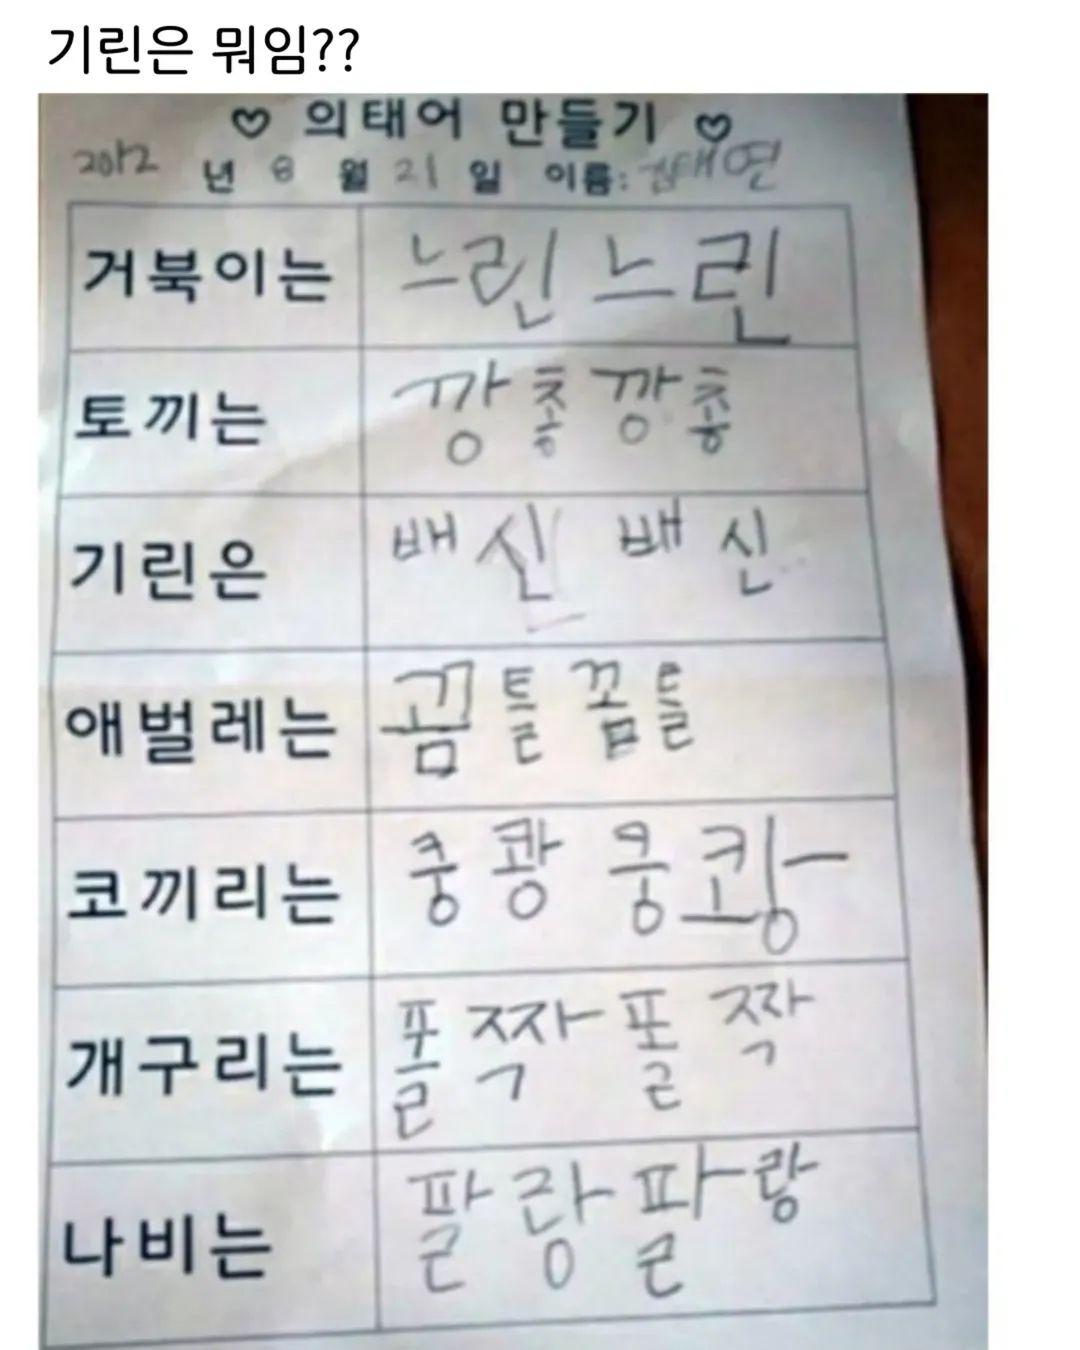 기린은 뭐임??
♡ 의태어 만들기 ♡
2012 년 8 월 21 일 이름: 김태연
거북이는 느린 느린
토끼는 깡총 깡총
기린은 배신 배신
애벌레는 꿈틀 꿈틀
코끼리는 쿵쾅 쿵쾅
개구리는 폴짝 폴짝
나비는 팔랑 팔랑